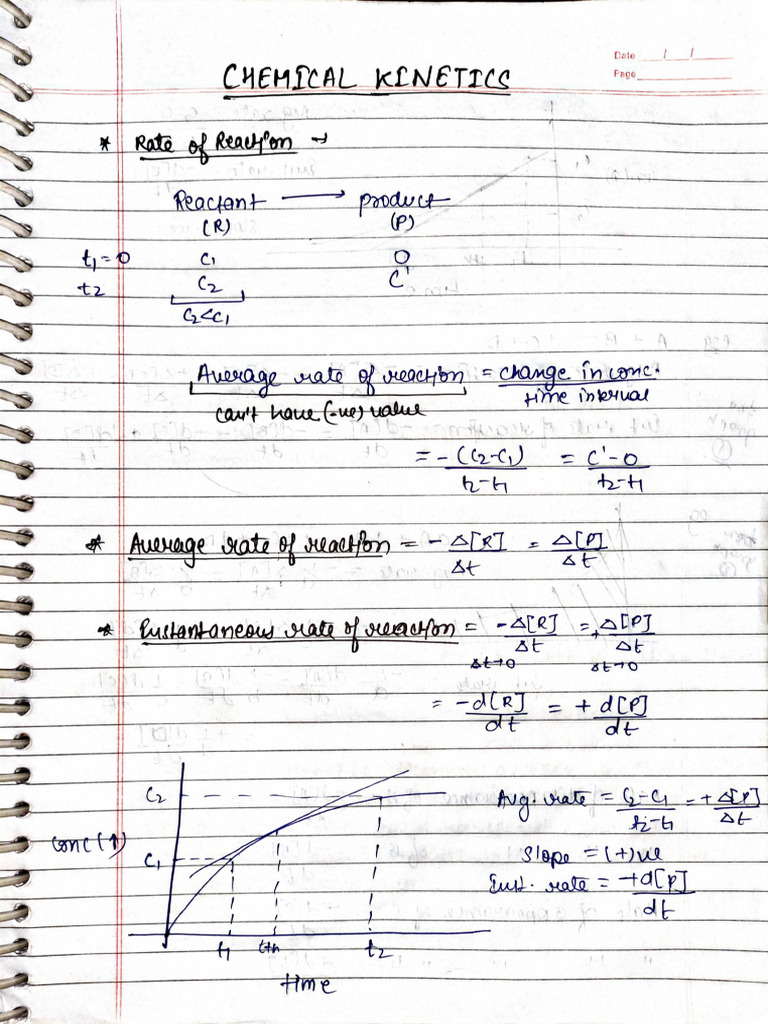 Date / /
Page
CHEMICAL KINETICS
* Rate of Reaction →
Reactant ⟶ product
(R) (P)
t1 = 0 C1 0
t2 C2 C'
C2<C1
Average rate of reaction = change in conc. / time interval
can't have (-ve) value
= -(C2-C1) / t2-t1 = C'-0 / t2-t1
* Average rate of reaction = - Δ[R] / Δt = Δ[P] / Δt
* Instantaneous rate of reaction = -Δ[R] / Δt = + Δ[P] / Δt
Δt→0 Δt→0
= -d[R] / dt = + d[P] / dt
C2
Avg. rate = C2-C1 / t2-t1 = +Δ[P] / Δt
Conc(↑) C1
Slope = (+)ve
Inst. rate = +d[P] / dt
t1 t2
time